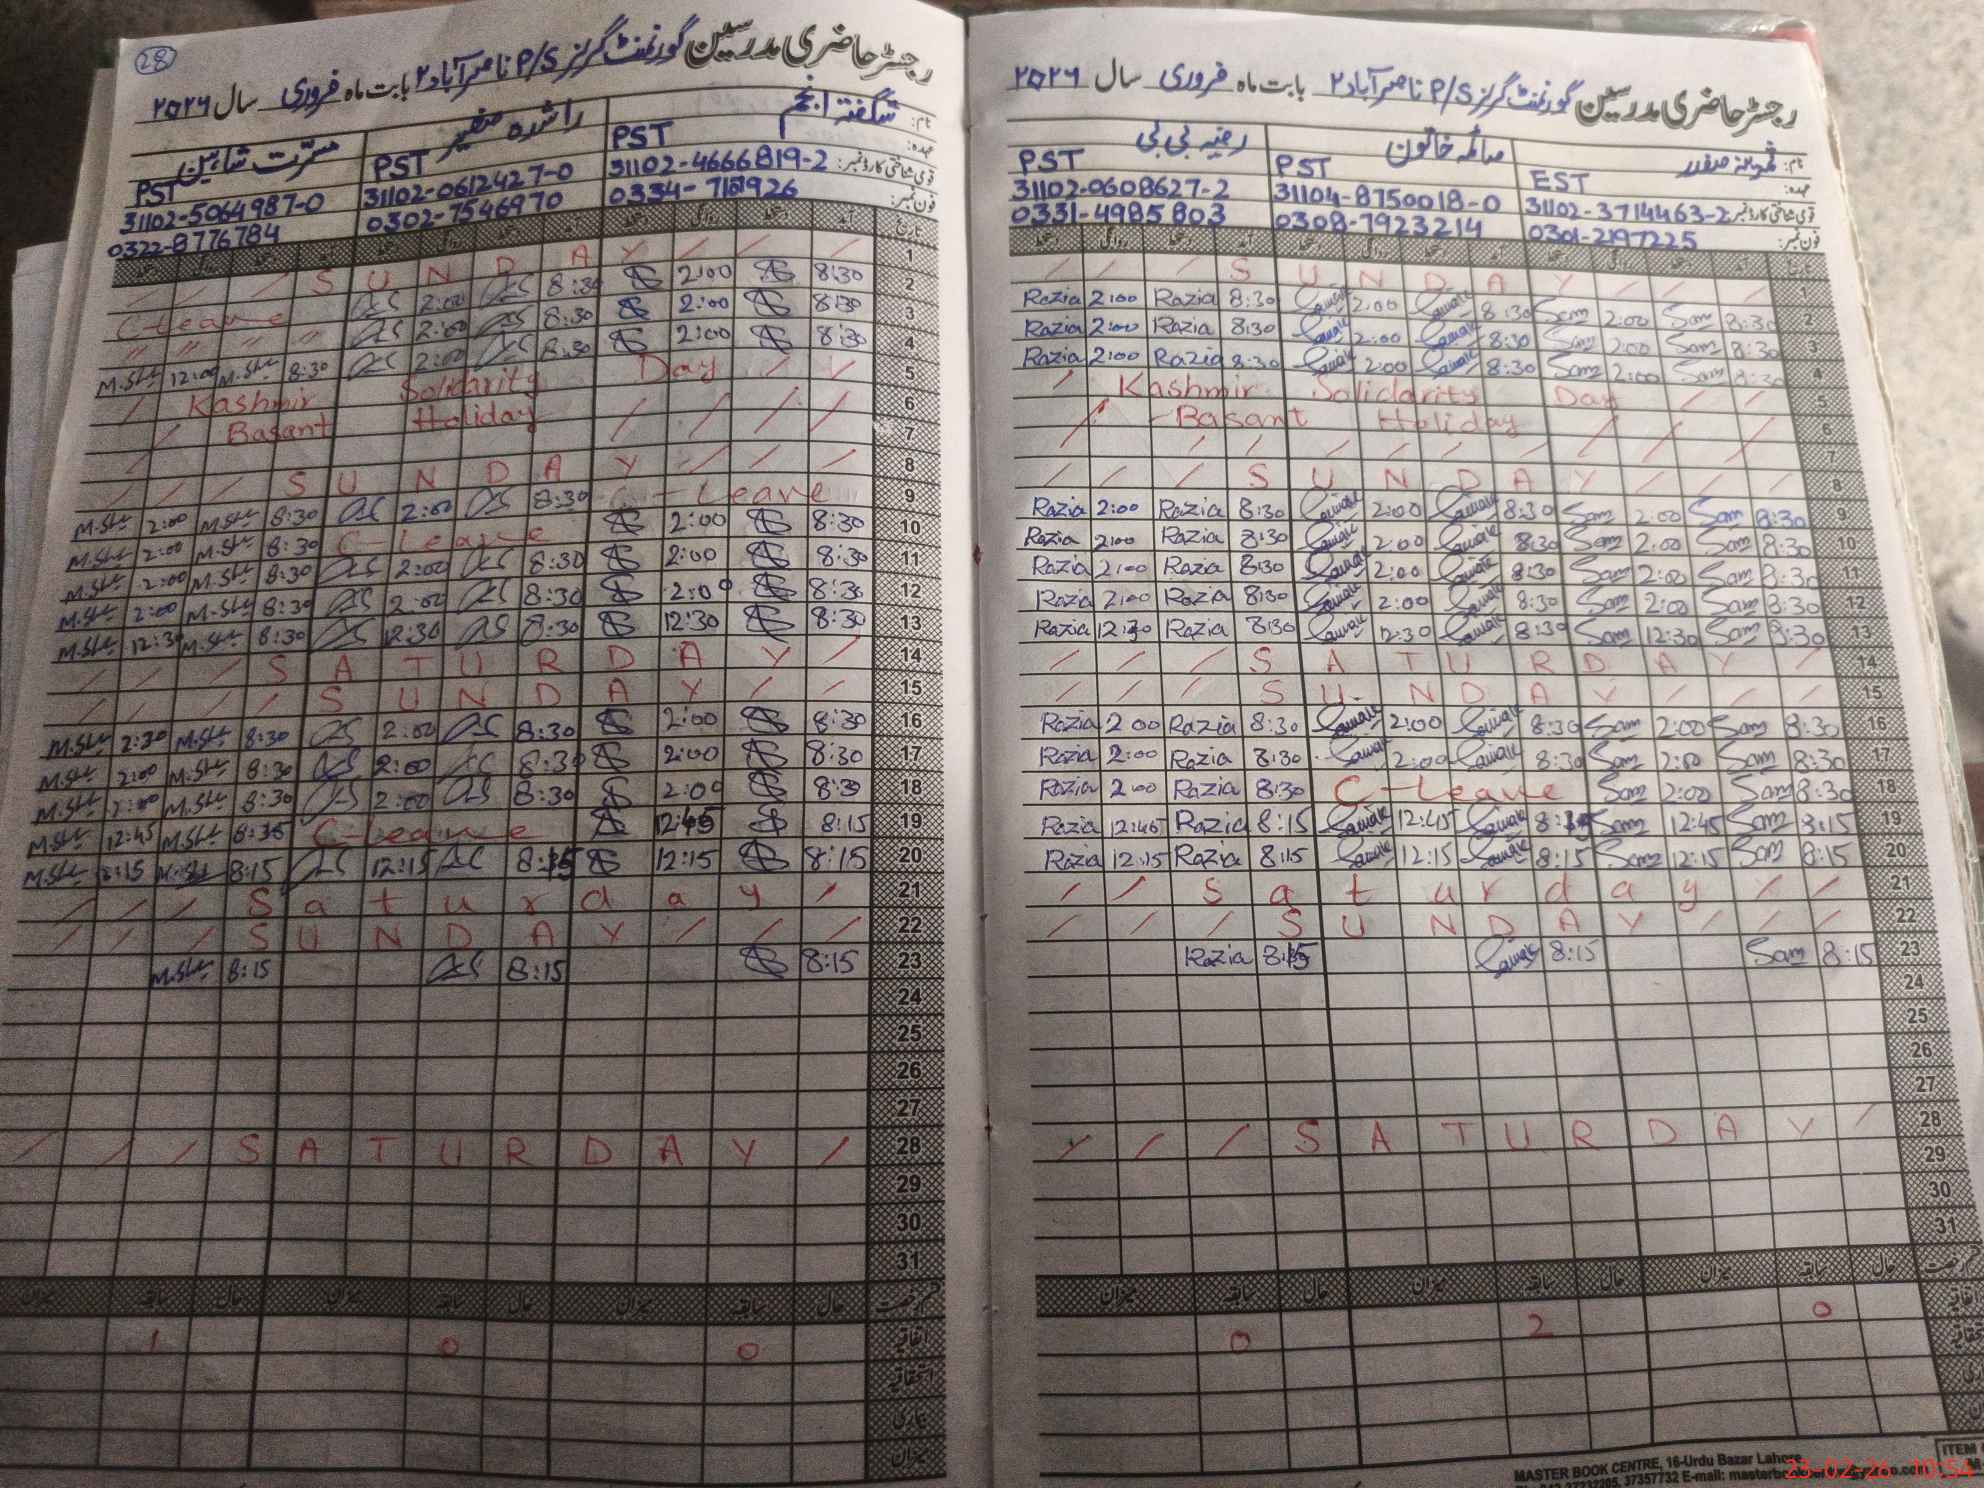 28
رجسٹر حاضری مدرسین گورنمنٹ گرلز P/S ناصر آباد ۲ بابت ماہ فروری سال ۲۰۲۶
نام: شگفتہ انجم راشدہ صغیر مسرت شاہین
عہدہ: PST PST PST
قومی شناختی کارڈ نمبر: 31102-4666819-2 31102-0612427-0 31102-5064987-0
فون نمبر: 0302-7546970 0322-8776784
تاریخ آمد دستخط روانگی دستخط
1 / / / S U N D A Y / / /
2 C-Leave 2:00 8:30 2:00 8:30
3 〃 〃 〃 〃 2:00 8:30 2:00 8:30
4 12:00 8:30 2:00 8:30 2:00 8:30
5 / Kashmir Solidarity Day / /
6 / Basant Holiday / / / /
7 /
8 / / / S U N D A Y / / /
9 2:00 8:30 2:00 8:30 C-Leave
10 2:00 8:30 C-Leave 2:00 8:30
11 2:00 8:30 2:00 8:30 2:00 8:30
12 2:00 8:30 2:00 8:30 2:00 8:30
13 12:30 8:30 12:30 8:30 12:30 8:30
14 / / / S A T U R D A Y /
15 / / / / S U N D A Y / /
16 2:30 8:30 2:00 8:30 2:00 8:30
17 2:00 8:30 2:00 8:30 2:00 8:30
18 2:00 8:30 2:00 8:30 2:00 8:30
19 12:45 C-Leave 12:45 8:15
20 8:15 12:15 8:15 12:15 8:15
21 / / / S a t u r d a y /
22 / / / S U N D A Y / / /
23 8:15 8:15 8:15
24
25
26
27
28 / / / S A T U R D A Y /
29
30
31
قسم رخصت حال سابقہ میزان حال سابقہ میزان حال سابقہ میزان
اتفاقیہ 0 0 1
استحقاقیہ
بیماری
میزان
رجسٹر حاضری مدرسین گورنمنٹ گرلز P/S ناصر آباد ۲ بابت ماہ فروری سال ۲۰۲۶
نام: صائمہ خاتون رضیہ بی بی
عہدہ: EST PST PST
قومی شناختی کارڈ نمبر: 31102-3714463-2 31104-8750018-0 31102-0608627-2
فون نمبر: 0301-2197225 0308-7923214 0331-4985803
تاریخ آمد دستخط روانگی دستخط
1 / / / S U N D A Y / / /
2 Razia 2:00 Razia 8:30 2:00 8:30 Sam 2:00 Sam 8:30
3 Razia 2:00 Razia 8:30 2:00 8:30 Sam 2:00 Sam 8:30
4 Razia 2:00 Razia 8:30 2:00 8:30 Sam 2:00 Sam 8:30
5 / Kashmir Solidarity Day / /
6 / Basant Holiday / / /
7 / / / / / /
8 / / / S U N D A Y / / /
9 Razia 2:00 Razia 8:30 2:00 8:30 Sam 2:00 Sam 8:30
10 Razia 2:00 Razia 8:30 2:00 8:30 Sam 2:00 Sam 8:30
11 Razia 2:00 Razia 8:30 2:00 8:30 Sam 2:00 Sam 8:30
12 Razia 2:00 Razia 8:30 2:00 8:30 Sam 2:00 Sam 8:30
13 Razia 12:30 Razia 8:30 12:30 8:30 Sam 12:30 Sam 8:30
14 / / / S A T U R D A Y /
15 / / / S U N D A Y / / /
16 Razia 2:00 Razia 8:30 2:00 8:30 Sam 2:00 Sam 8:30
17 Razia 2:00 Razia 8:30 2:00 8:30 Sam 2:00 Sam 8:30
18 Razia 2:00 Razia 8:30 C-Leave Sam 2:00 Sam 8:30
19 Razia 12:45 Razia 8:15 12:45 Sam 12:45 Sam 8:15
20 Razia 12:15 Razia 8:15 12:15 8:15 Sam 12:15 Sam 8:15
21 / / S a t u r d a y / /
22 / / / S U N D A Y / / /
23 Razia 8:15 8:15 Sam 8:15
24
25
26
27
28 / / / S A T U R D A Y /
29
30
31
حال سابقہ میزان حال سابقہ میزان حال سابقہ میزان
0 2 0
ITEM
MASTER BOOK CENTRE, 16-Urdu Bazar Lahore
37357732 E-mail:
23-02-26 10:54